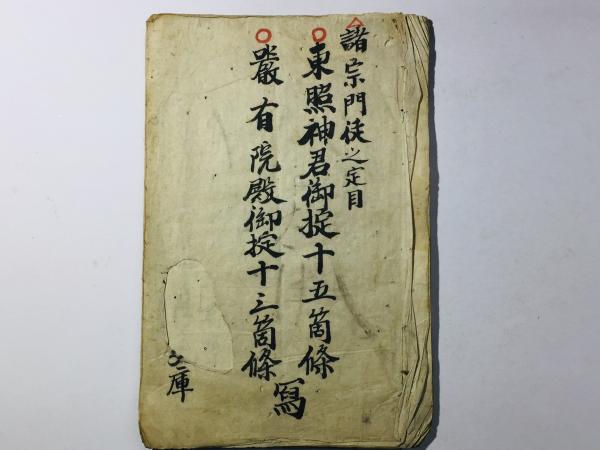 諸宗門徒之定目
東照神君御掟十五箇條
嚴有院殿御掟十三箇條
寫
文庫